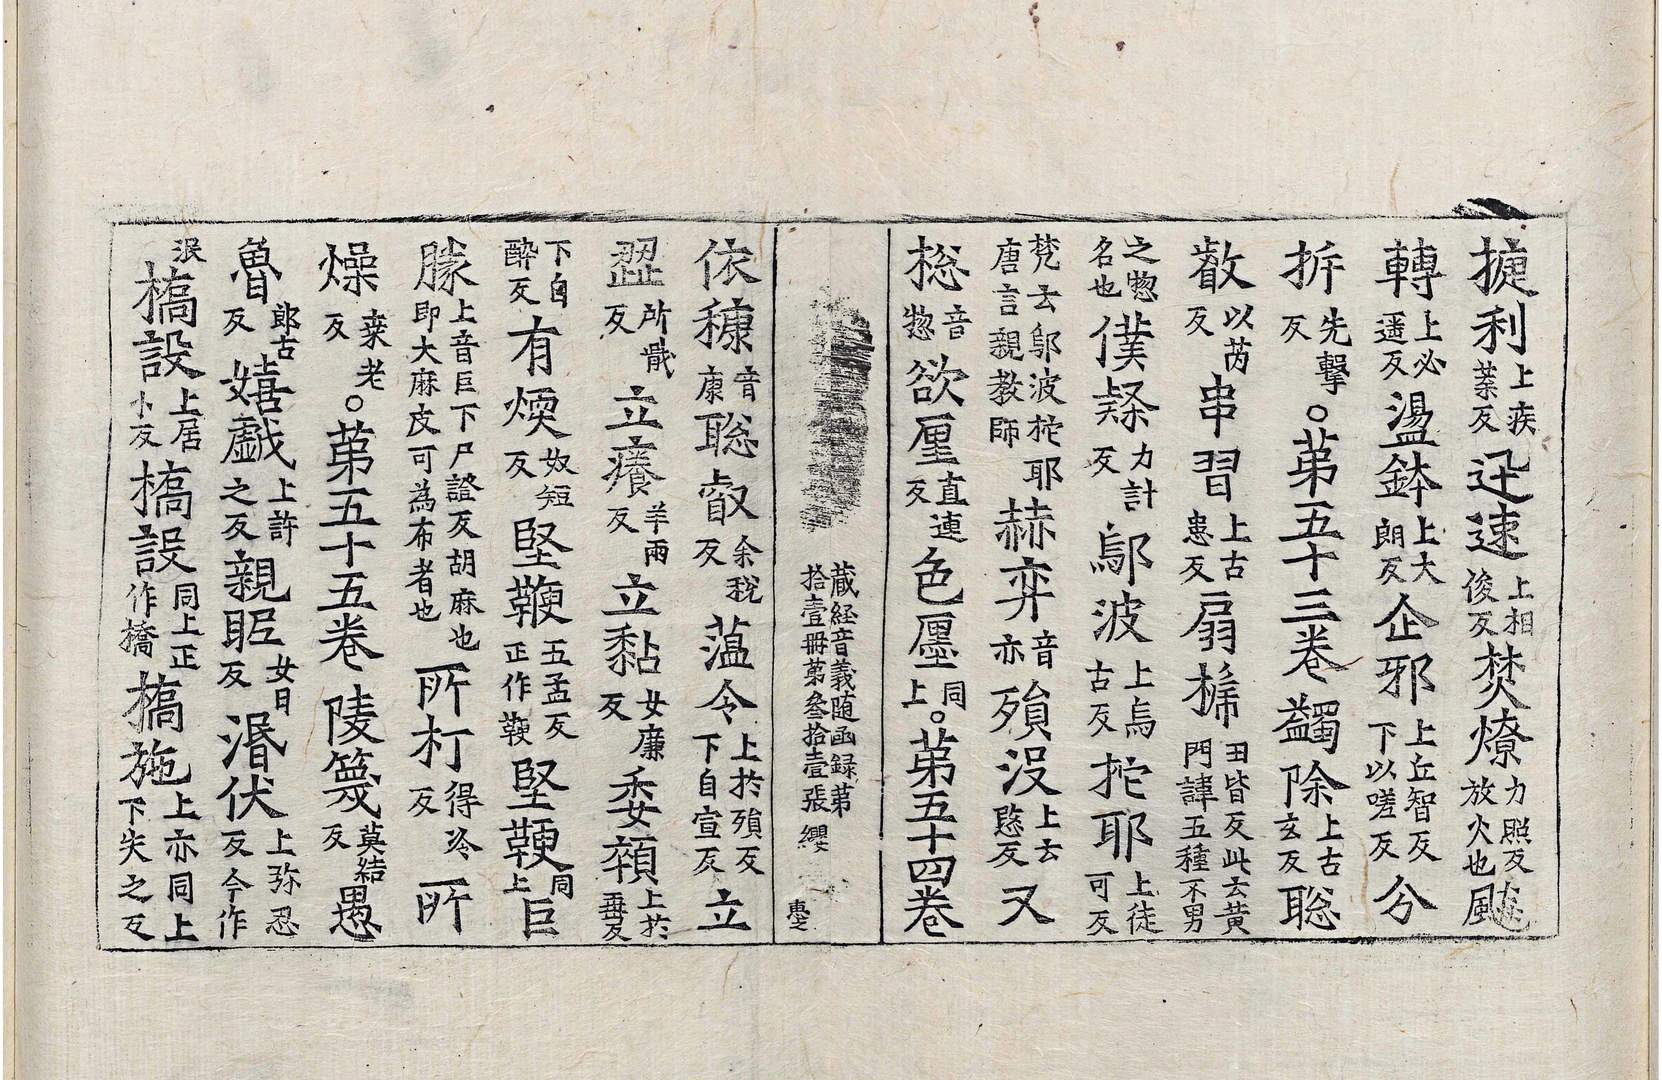 捷利上疾葉反迅速上相俊反焚燎力照反放火也飈
轉上必遥反盪鉢上大朗反企邪上丘智反下以嗟反分
㭊先擊反○苐五十三巻蠲除上古玄反聡
叡以芮反串習上古患反扇搋丑皆反此云黄門諱五種不男
之惣名也僕𨽻力計反鄔波上烏古反拕耶上徒可反
梵云鄔波拕耶唐言親教師赫弈音亦殞没上云愍反又
捴音惣欲㕓直連反色㕓同上。苐五十四巻
蔵経音義随函録苐
拾壹冊苐叄拾壹張 纓 惠之
依穅音康聡叡余稅反薀令上於殞反下自宣反立
澀所戢反立癢羊兩反立黏女廉反委顇上於垂反
下自醉反有煗奴短反堅鞕五孟反正作鞕堅鞕同上巨
𦡊上音巨下尸證反胡麻也即大麻皮可為布者也所打得冷反所
燥桒老反○苐五十五巻陵篾莫結反愚
魯郎古反嬉戯上許之反親昵女日反湣伏上弥忍反今作
泯搞設上居小反搞設同上正作撟搞施上亦同上下失之反